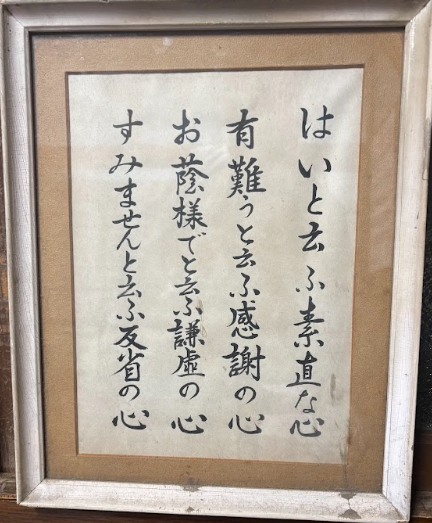 はいと云ふ素直な心
有難うと云ふ感謝の心
お蔭様でと云ふ謙虚の心
すみませんと云ふ反省の心